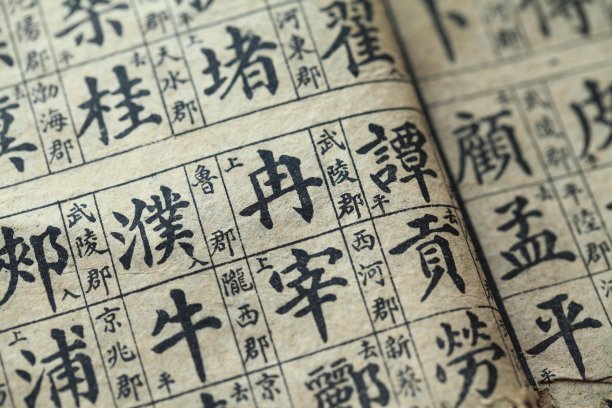 卜
武陵郡 顧 去
平陸郡 孟 去
平 平
翟
譚 平
貢 去
勞
河東郡 堵 上
武陵郡 冉 上
西河郡 宰 上
新蔡郡 酈 去
郡 桑 平
天水郡 桂 去
魯郡 濮 入
隴西郡 牛 平
京 去
陽郡
渤海郡 冀 去
武陵郡 郟 入
京兆郡 浦 上